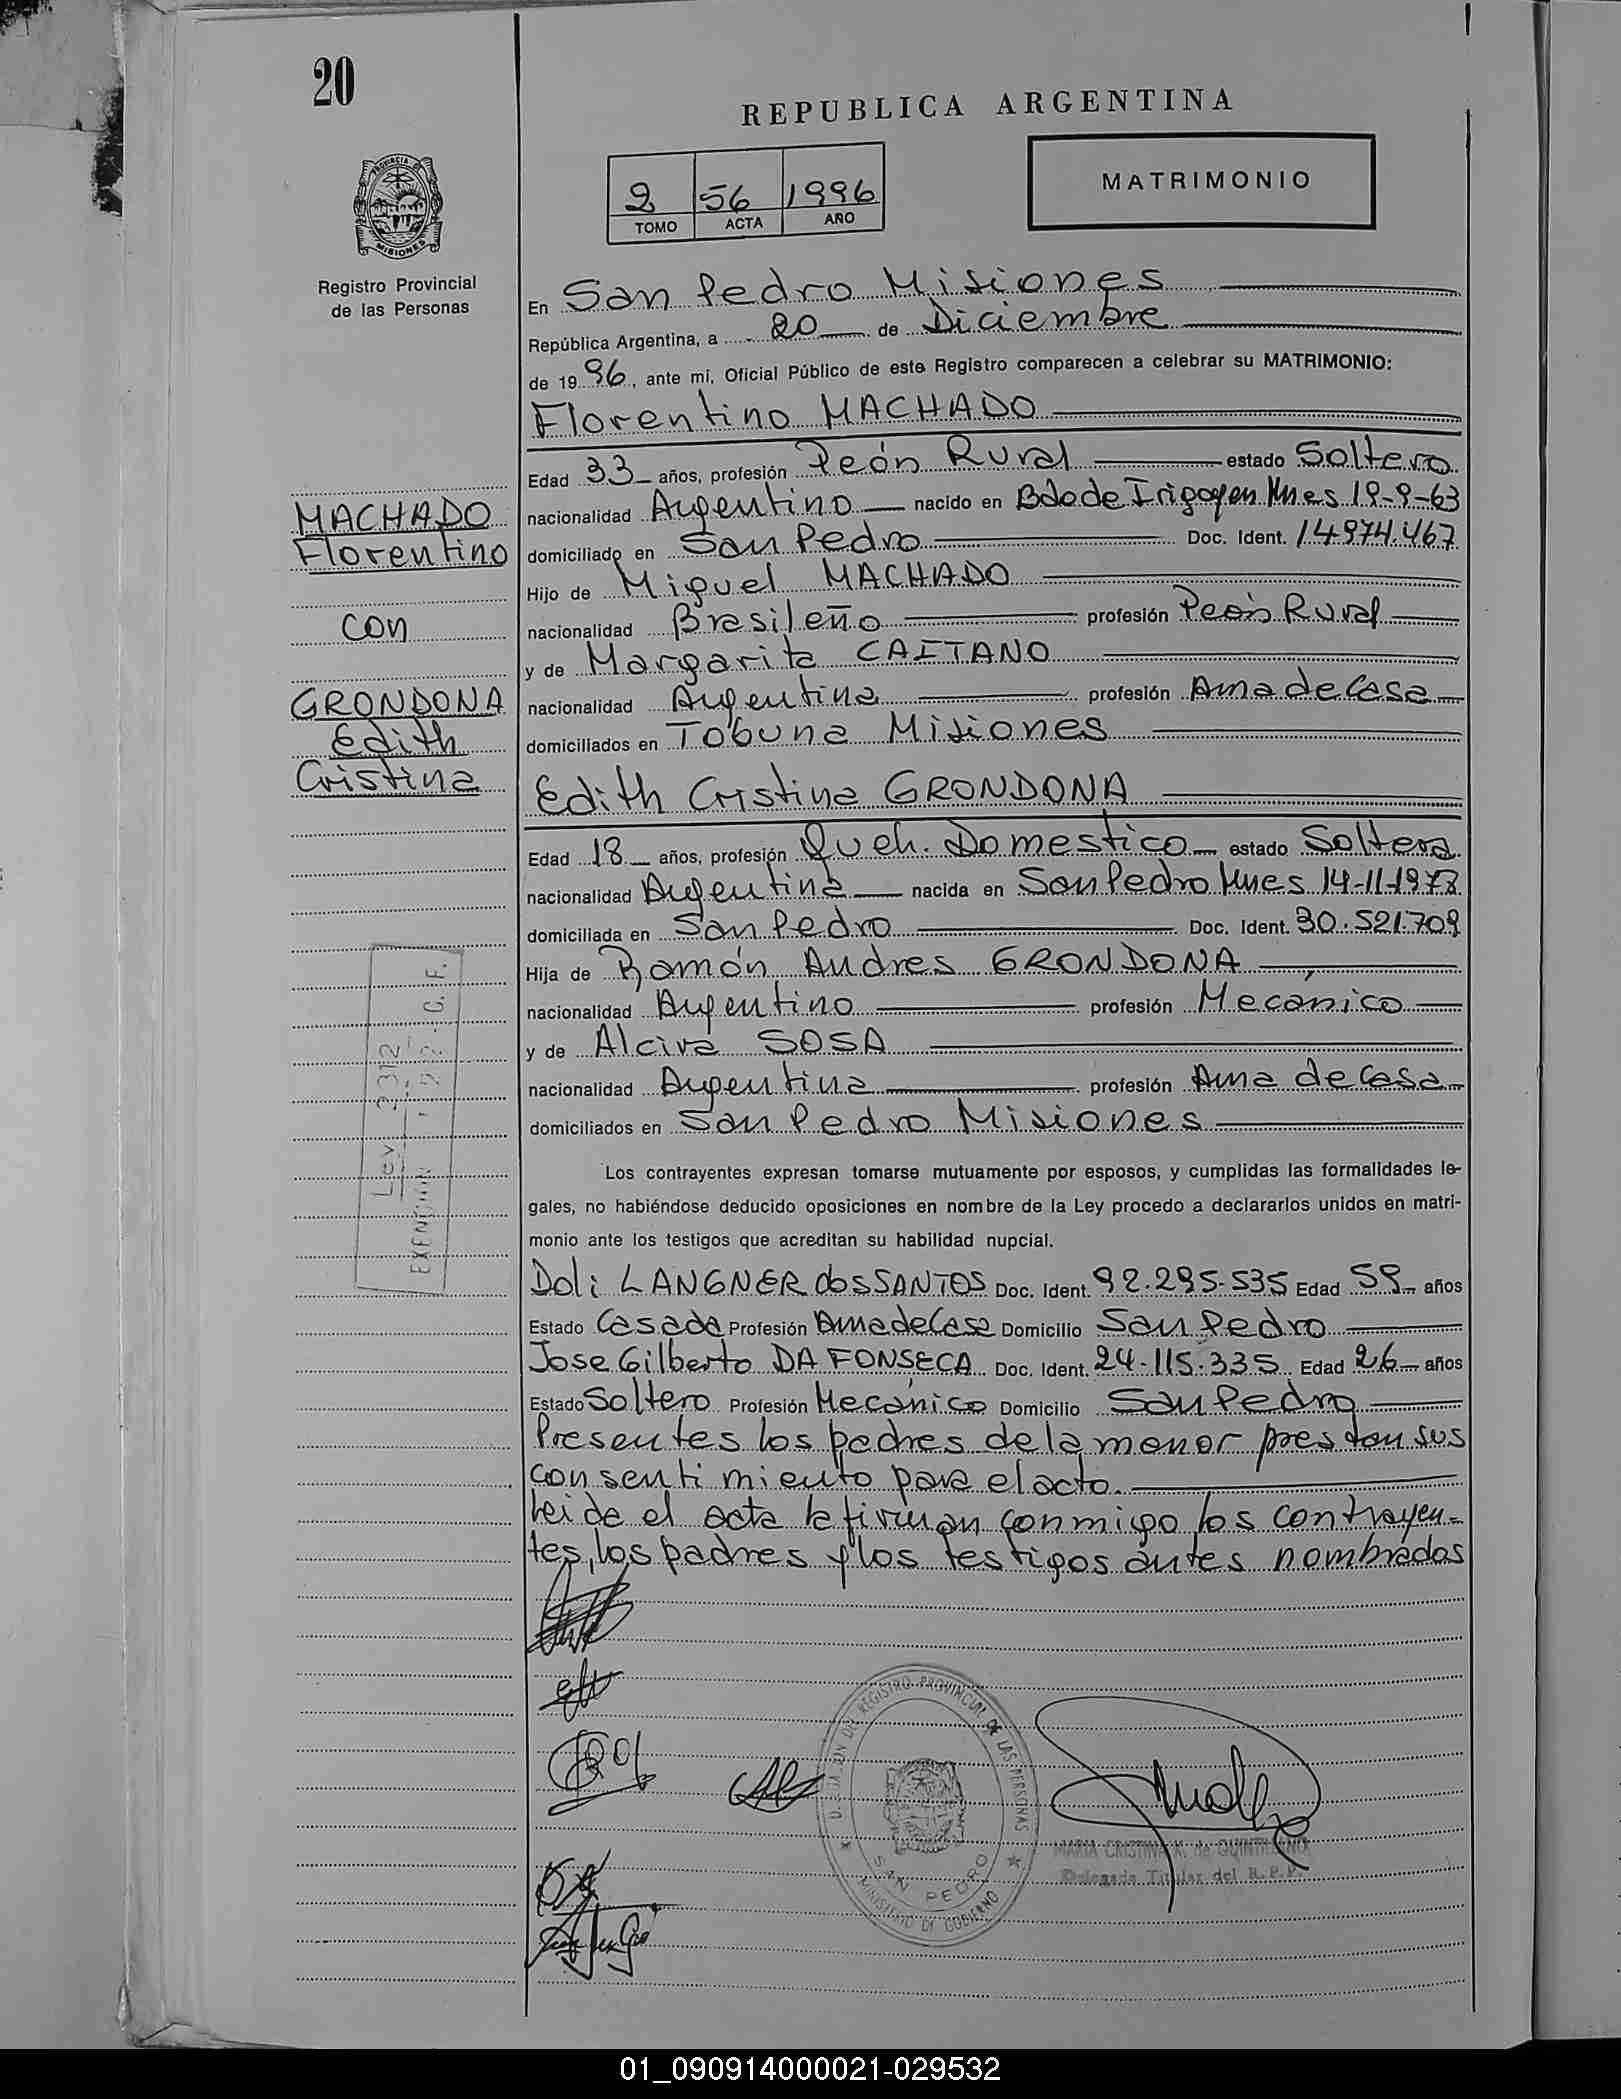 20
REPUBLICA ARGENTINA
2 56 1996
TOMO ACTA AÑO
MATRIMONIO
PROVINCIA DE
MISIONES
Registro Provincial
de las Personas
En San Pedro Misiones
República Argentina, a 20 de Diciembre
de 1996, ante mí, Oficial Público de este Registro comparecen a celebrar su MATRIMONIO:
Florentino MACHADO
Edad 33 años, profesión Peón Rural estado Soltero
nacionalidad Argentino nacido en Bdo de Irigoyen Mnes 19-9-63
domiciliado en San Pedro Doc. Ident. 14.974.467
Hijo de Miguel MACHADO
nacionalidad Brasileño profesión Peón Rural
y de Margarita CAITANO
nacionalidad Argentina profesión Ama de Casa
domiciliados en Tobuna Misiones
MACHADO
Florentino
con
GRONDONA
Edith
Cristina
Edith Cristina GRONDONA
Edad 18 años, profesión Queh. Domestico estado Soltera
nacionalidad Argentina nacida en San Pedro Mnes 14-11-1978
domiciliada en San Pedro Doc. Ident. 30.521.709
Hija de Ramón Andres GRONDONA
nacionalidad Argentino profesión Mecánico
y de Alcira SOSA
nacionalidad Argentina profesión Ama de Casa
domiciliados en San Pedro Misiones
Ley 2312
EXENCION C. F.
Los contrayentes expresan tomarse mutuamente por esposos, y cumplidas las formalidades le-
gales, no habiéndose deducido oposiciones en nombre de la Ley procedo a declararlos unidos en matri-
monio ante los testigos que acreditan su habilidad nupcial.
Doli LANGNER dos SANTOS Doc. Ident. 92.295.535 Edad 59 años
Estado Casada Profesión Ama de Casa Domicilio San Pedro
Jose Gilberto DA FONSECA Doc. Ident. 24.115.335 Edad 26 años
Estado Soltero Profesión Mecánico Domicilio San Pedro
Presentes los padres de la menor prestan sus
consentimiento para el acto.
Leida el acta la firman conmigo los contrayen-
tes, los padres y los testigos antes nombrados
DELEGACION DEL REGISTRO PROVINCIAL DE LAS PERSONAS
SAN PEDRO
MINISTERIO DE GOBIERNO
MARIA CRISTINA K. de QUINTILIANO
Delegada Titular del R.P.P.
01_090914000021-029532